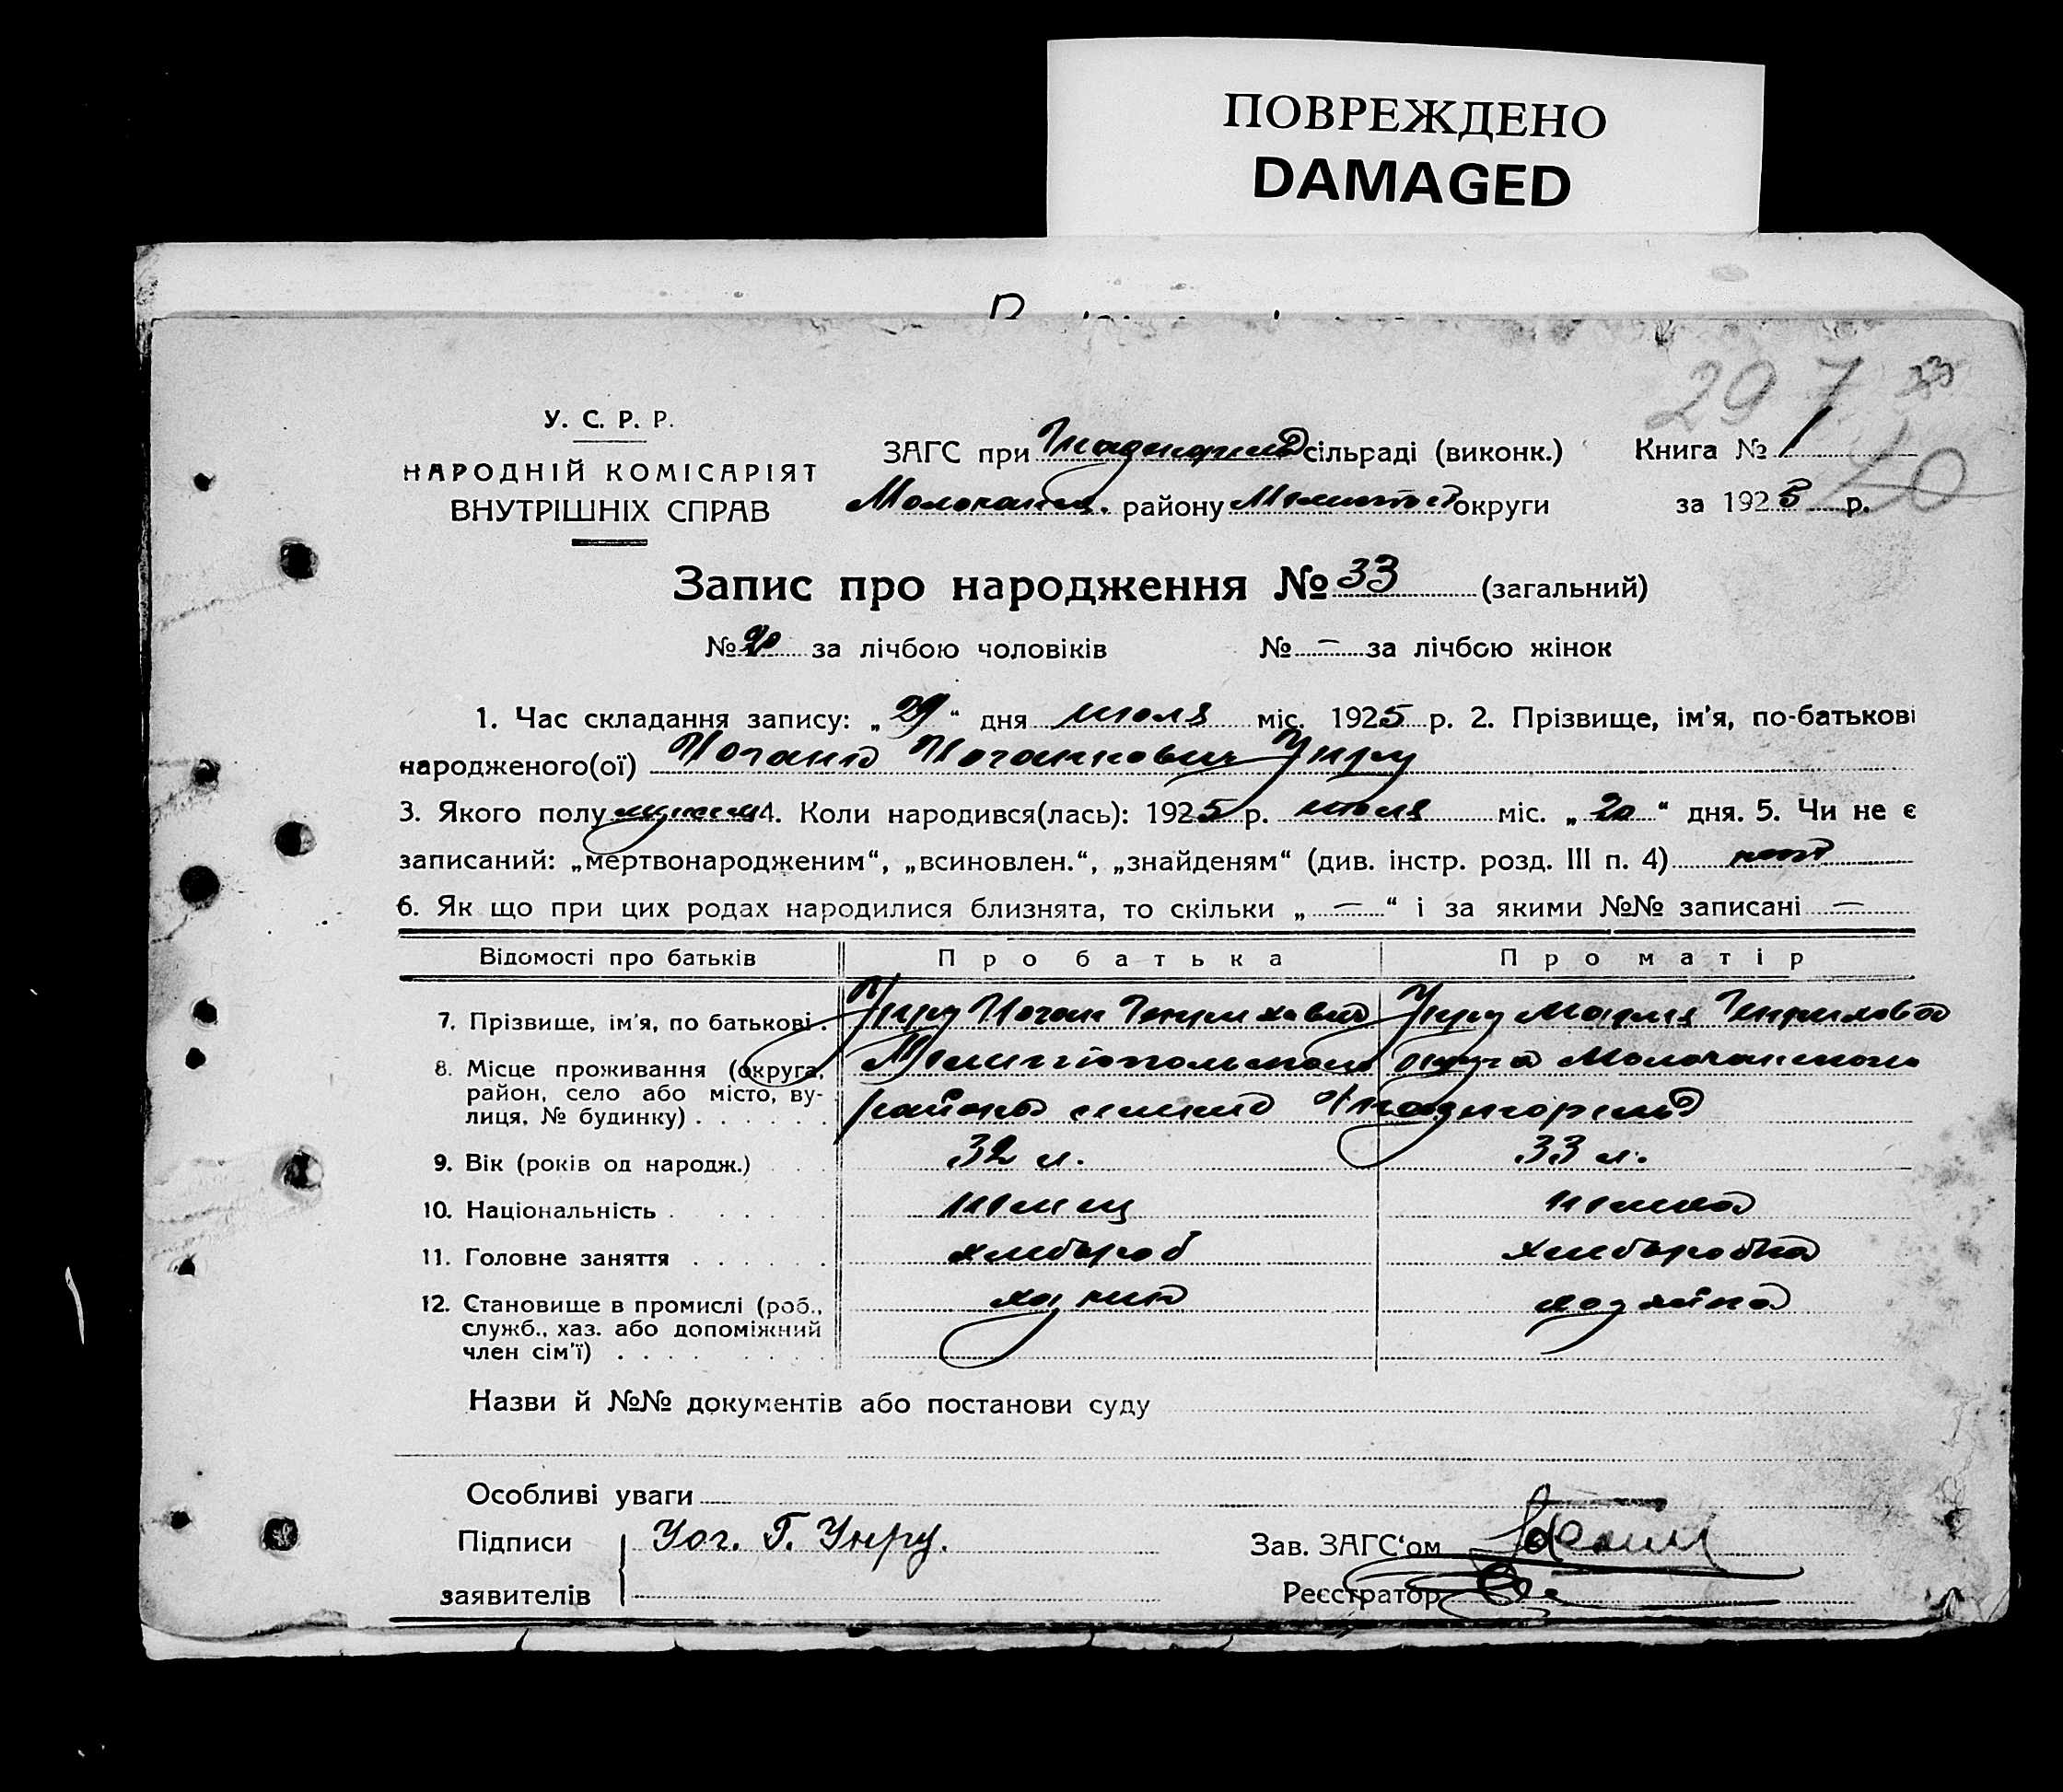 ПОВРЕЖДЕНО
DAMAGED
29 7 33
У. С. Р. Р.
НАРОДНІЙ КОМІСАРІЯТ
ВНУТРІШНІХ СПРАВ
ЗАГС при сільраді (виконк.) Книга № 1
Молочанск. району округи за 1925 р.
Запис про народження № 33 (загальний)
№ за лічбою чоловіків № — за лічбою жінок
1. Час складання запису: „29“ дня июля міс. 1925 р. 2. Прізвище, ім'я, по-батькові
народженого(ої) Иоганн Иоганнович Унру
3. Якого полу мужск 4. Коли народився(лась): 1925 р. июля міс. „20“ дня. 5. Чи не є
записаний: „мертвонародженим“, „всиновлен.“, „знайденям“ (див. інстр. розд. III п. 4) нет
6. Як що при цих родах народилися близнята, то скільки „—“ і за якими №№ записані —
Відомості про батьків Про батька Про матір
7. Прізвище, ім'я, по батькові . Унру Иоган Генрихович Унру Мария Генриховна
8. Місце проживання (округа, район, село або місто, вулиця, № будинку) . . . . . . Мелитопольского округа Молочанского
района
9. Вік (років од народж.) . . . 32 л. 33 л.
10. Національність . . . . . немец немка
11. Головне заняття . . . . . . хлибороб хлиборобка
12. Становище в промислі (роб., служб., хаз. або допоміжний член сім'ї) . . . . . . . . хозяин хозяйка
Назви й №№ документів або постанови суду
Особливі уваги
Підписи Иог. Г. Унру. Зав. ЗАГС'ом
заявителів Реєстратор